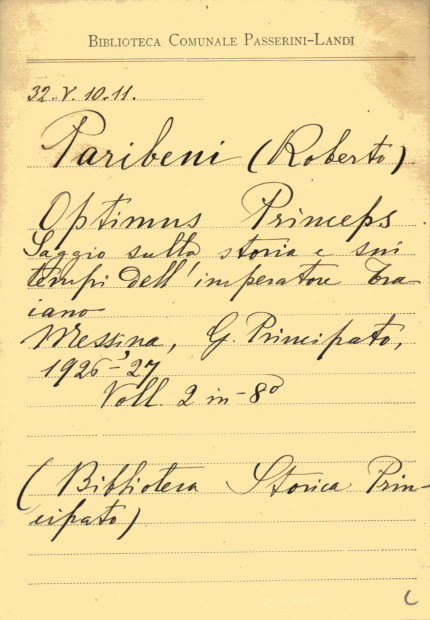 BIBLIOTECA COMUNALE PASSERINI-LANDI
32.V.10.11.
Paribeni (Roberto)
Optimus Princeps
Saggio sulla storia e sui
tempi dell'imperatore Tra-
iano
Messina, G. Principato,
1926-'27
Voll. 2 in-8º
(Biblioteca Storica Prin-
cipato)